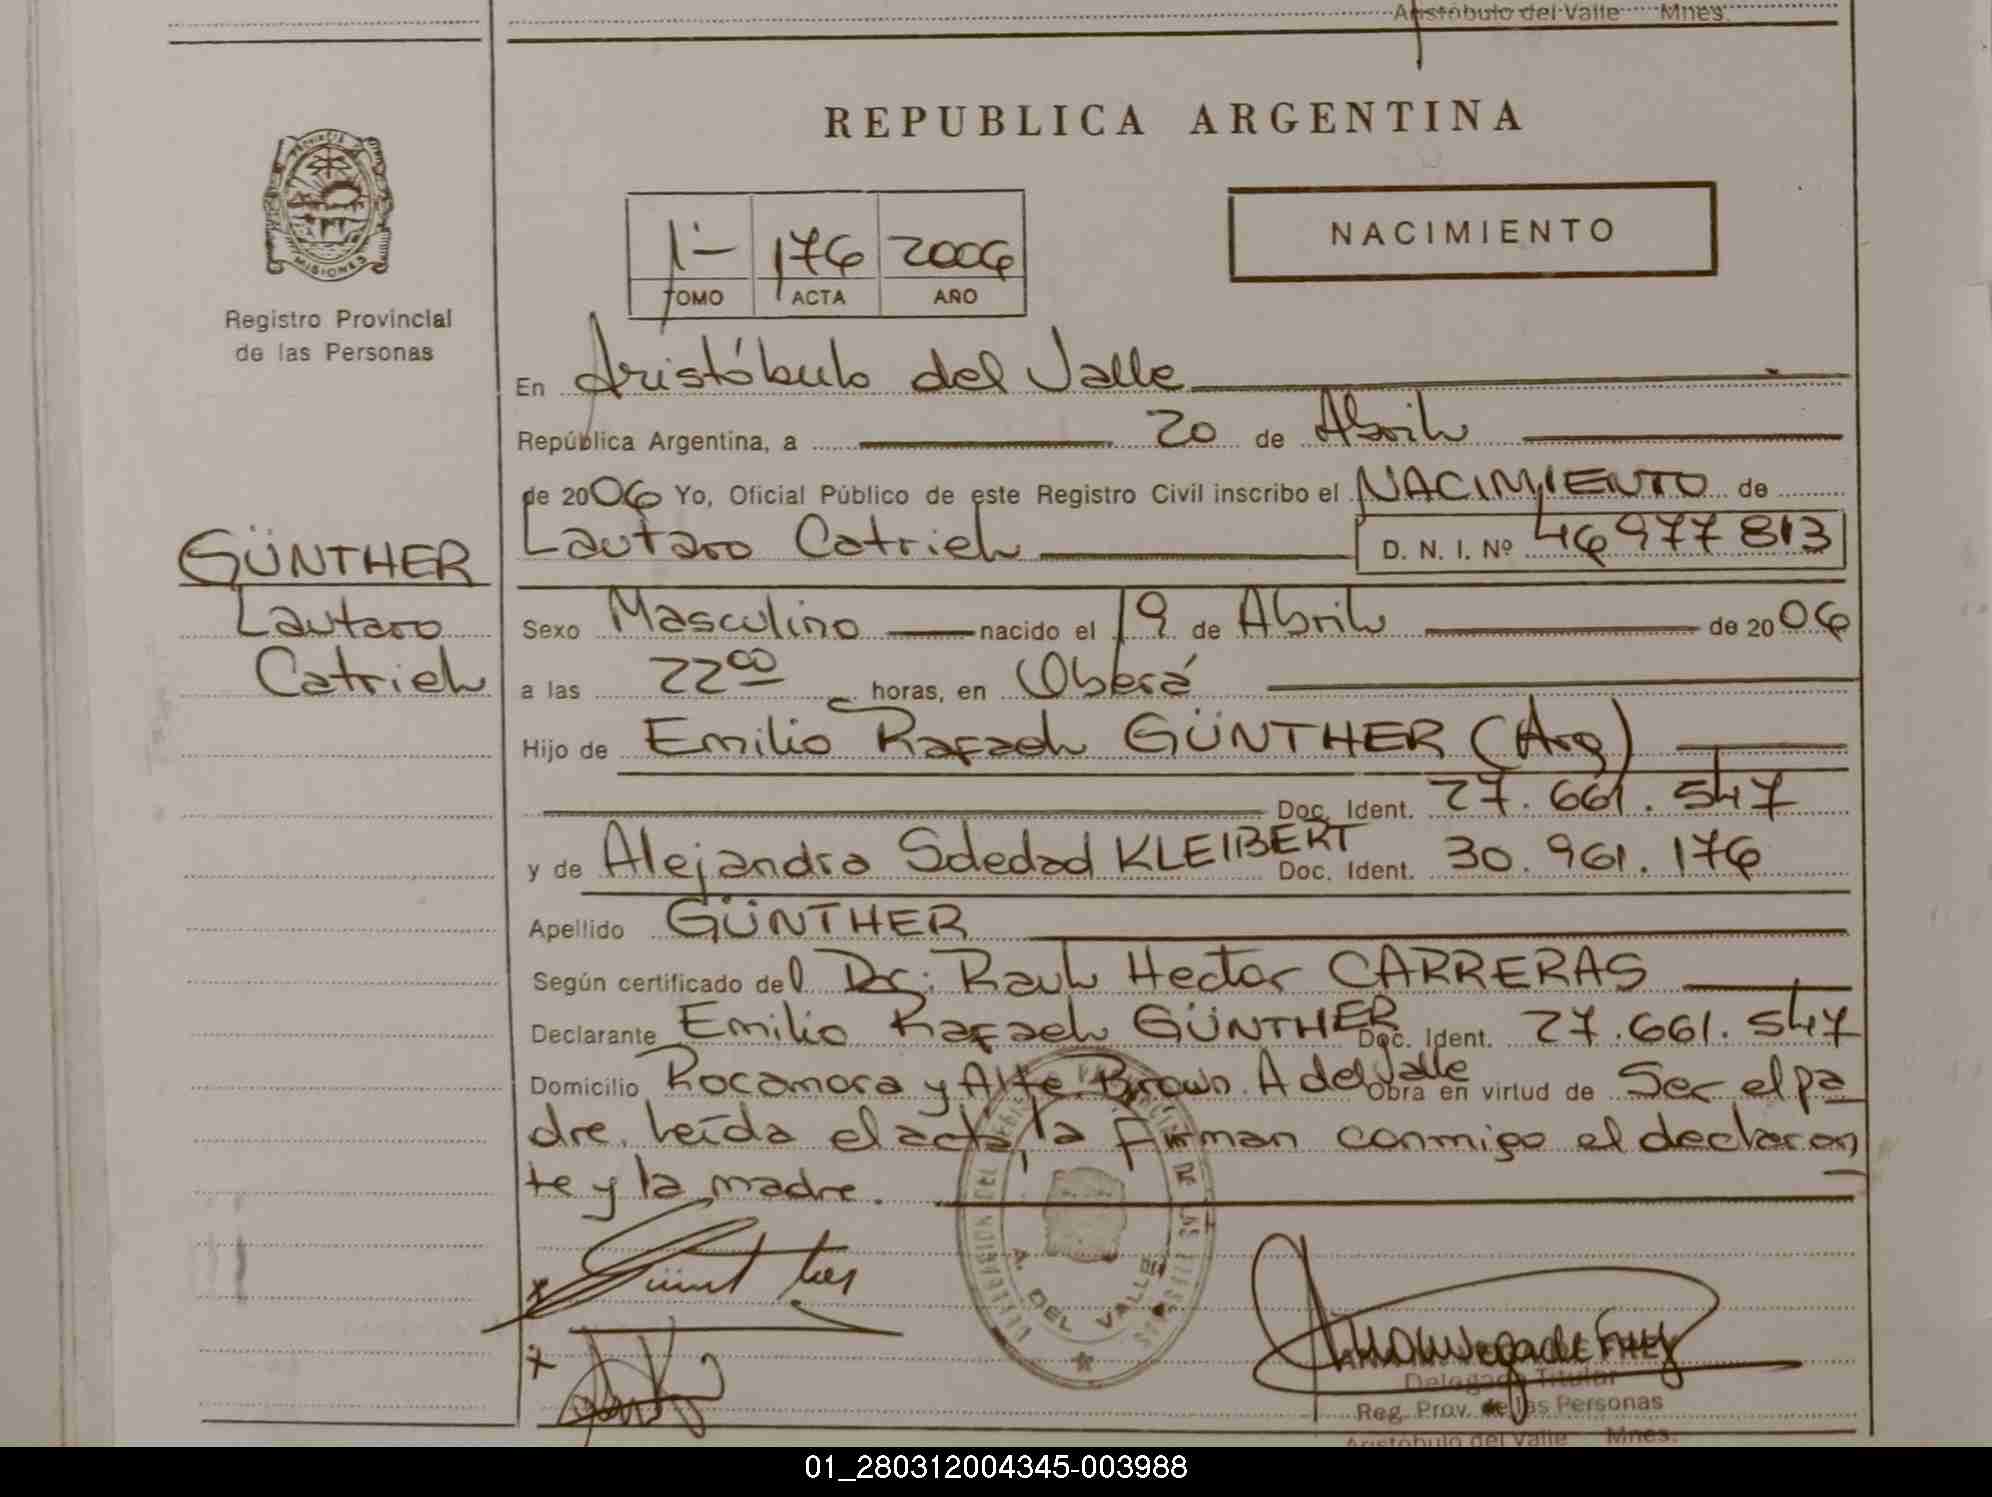 Aristóbulo del Valle Mnes.
PROVINCIA DE
MISIONES
Registro Provincial
de las Personas
GÜNTHER
Lautaro
Catriel
REPUBLICA ARGENTINA
NACIMIENTO
1- 176 2006
TOMO ACTA AÑO
En Aristóbulo del Valle
República Argentina, a 20 de Abril
de 2006 Yo, Oficial Público de este Registro Civil inscribo el NACIMIENTO de
Lautaro Catriel D. N. I. Nº 46977813
Sexo Masculino nacido el 19 de Abril de 2006
a las 22 00 horas, en Oberá
Hijo de Emilio Rafael GÜNTHER (Arg)
Doc. Ident. 27.661.547
y de Alejandra Soledad KLEIBERT Doc. Ident. 30.961.176
Apellido GÜNTHER
Según certificado del Dr. Raul Hector CARRERAS
Declarante Emilio Rafael GÜNTHER Doc. Ident. 27.661.547
Domicilio Rocamora y Alte Brown. A del Valle Obra en virtud de Ser el pa
dre. Leída el acta, la firman conmigo el declaran
te y la madre.
A. DEL VALLE
Delegada Titular
Reg. Prov. de las Personas
Aristóbulo del Valle Mnes.
01_280312004345-003988